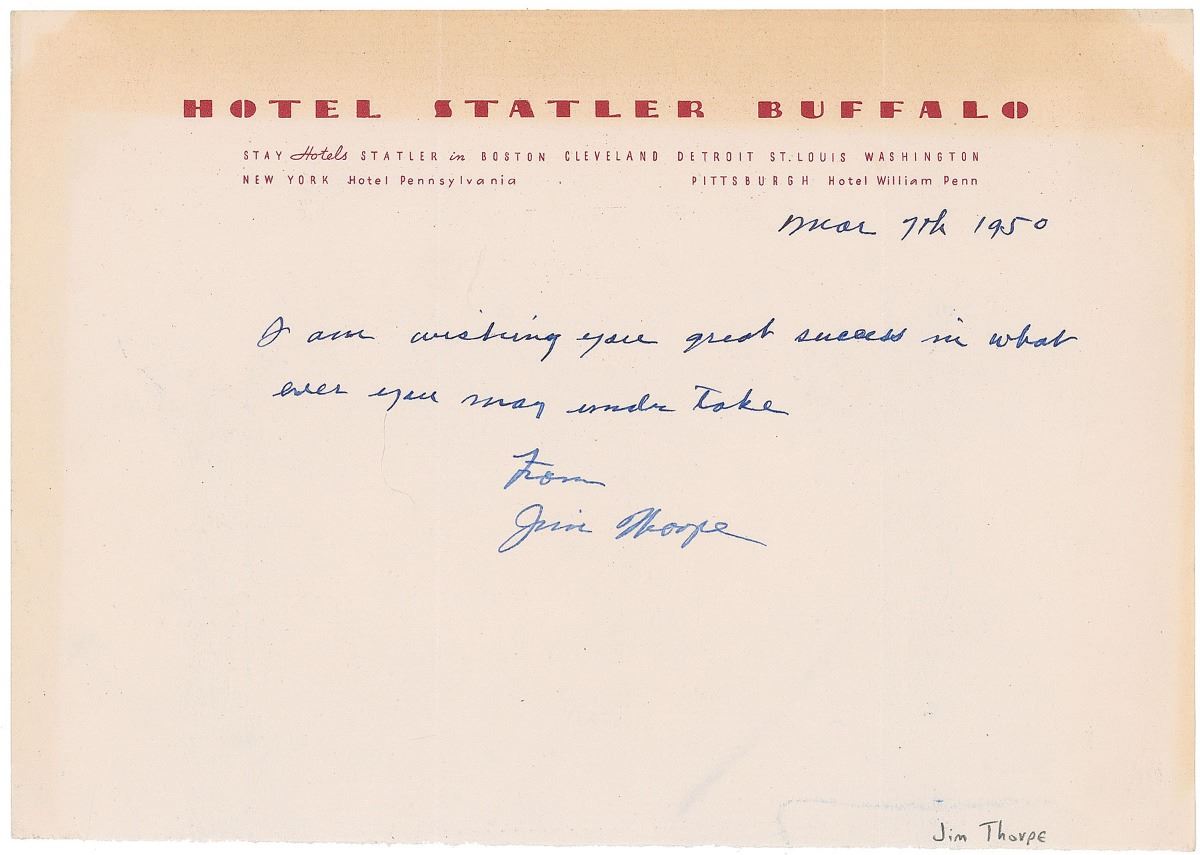 HOTEL STATLER BUFFALO
STAY Hotels STATLER in BOSTON CLEVELAND DETROIT ST. LOUIS WASHINGTON
NEW YORK Hotel Pennsylvania PITTSBURGH Hotel William Penn
Mar 7th 1950
I am wishing you great success in what
ever you may under take
From
Jim Thorpe
Jim Thorpe